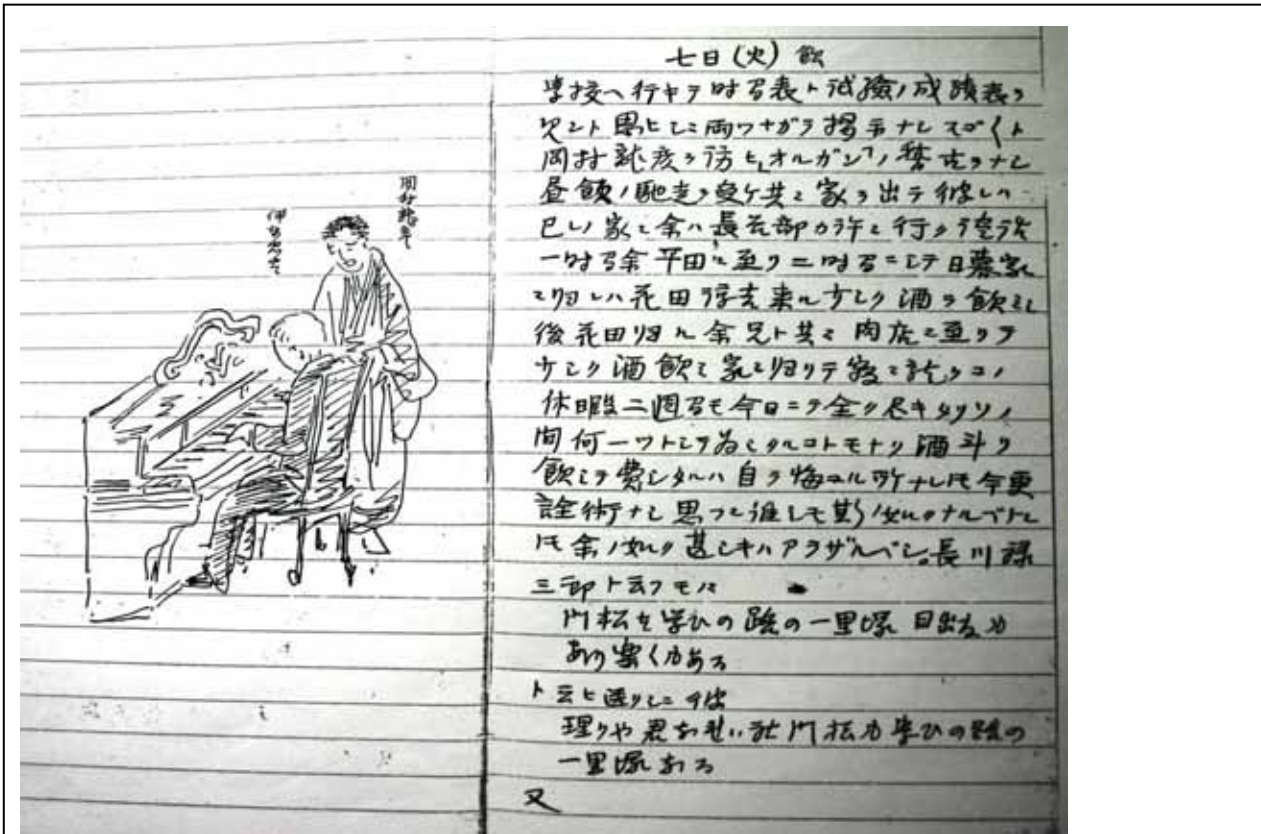 七日(火) 飲
学校へ行キテ時間表ト試験ノ成績表ヲ
見ント思ヒシニ両ワナガラ掲示ナレスゴ〱ト
岡村龍彦ヲ訪ヒオルガンノ稽古ヲナシ
昼飯ノ馳走ヲ受ケ共ニ家ヲ出テ彼レハ
己レノ家ニ余ハ長谷部カ許ニ行ク
一時間余平田ニ至リ二時間ニシテ日暮家
ニ帰レハ花田 来ル少シク酒ヲ飲ミシ
後花田帰ル余兄ト共ニ肉店ニ至リテ
少シク酒飲ミ家ニ帰リテ寝ニ就クコノ
休暇二週間モ今日ニテ全ク尽キタリソノ
間何一ツトシテ為シタルコトモナク酒斗リ
飲ミテ費シタルハ自ラ悔ユル所ナレ𪜈今更
詮術ナシ思フニ誰レモ斯ノ如クナルベケレ
𪜈余ノ如ク甚シキハアラザルベシ。長川禄
三郎ト云フモノ
門松も学びの路の一里塚 目出たくも
あり楽くもある
ト云ヒ送リシニ
理りや君 門松も学びの路の
一里塚なる
又
岡村龍彦